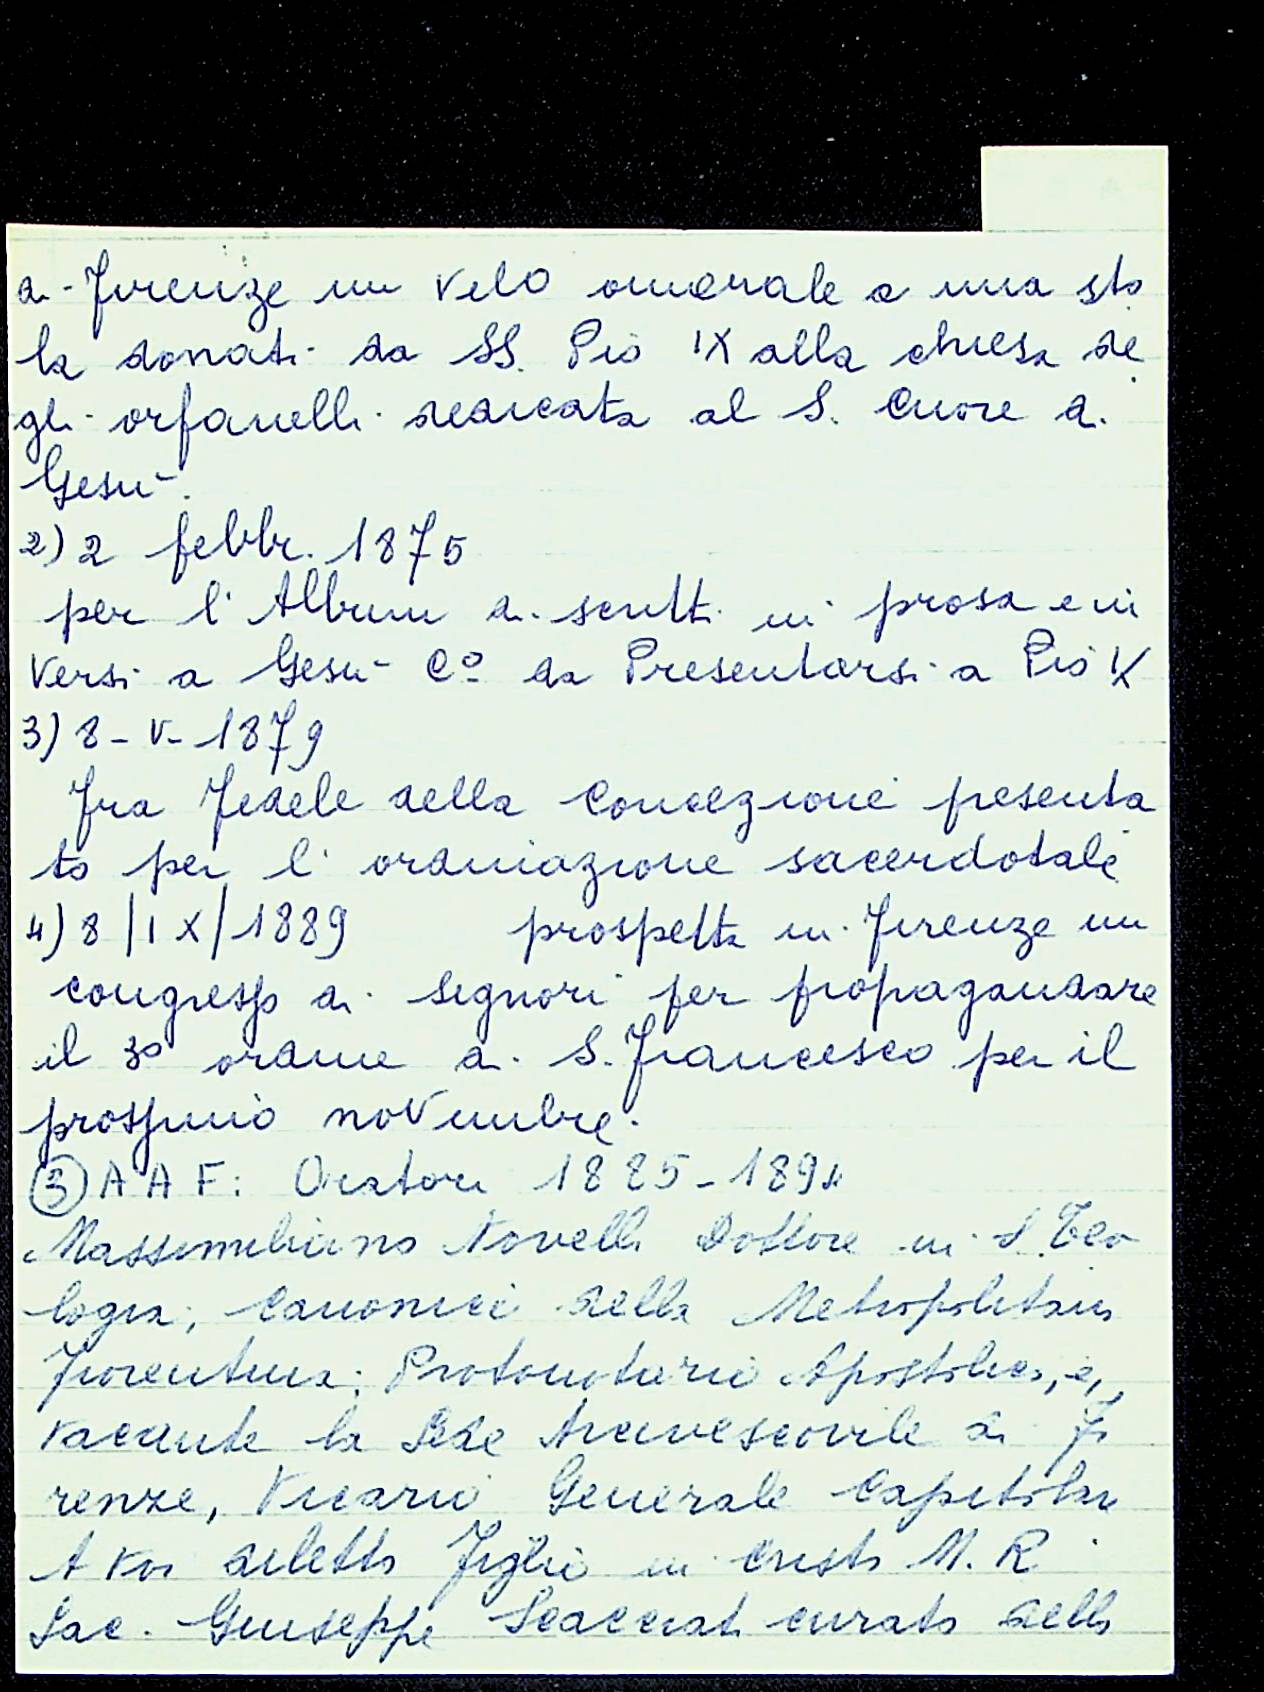 di Firenze un velo omerale e una sto
la donati da SS. Pio IX alla chiesa de
gli orfanelli dedicata al S. Cuore di
Gesù.
2) 2 febbr. 1875
per l'Album di scritti in prosa e in
versi a Gesù Cº da Presentarsi a Pio IX
3) 8-V-1879
Fra Fedele della Concezione presenta
to per l'ordinazione sacerdotale
4) 8/IX/1889 prospetta in Firenze un
congresso di signori per propagandare
il 3º ordine di S. Francesco per il
prossimo novembre.
3 A A F: Oratori 1885-1894
Massimiliano Novelli Dottore in S. Teo
logia, Canonico della Metropolitana
Fiorentina; Protonotario Apostolico, e,
vacante la Sede Arcivescovile di Fi
renze, Vicario Generale Capitolare
A Voi diletto Figlio in Cristo M. R.
Sac. Giuseppe Scacciati curato dello